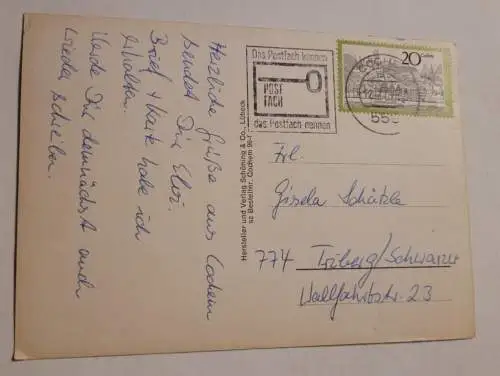 Herzliche Grüße aus Cochem
sendet Dir Elvi.
Brief + Karte habe ich
erhalten.
Werde Dir demnächst auch
wieder schreiben.
Hersteller und Verlag Schöning & Co., Lübeck
sz Besteller: Cochem
Das Postfach kennen
POST
FACH
das Postfach nennen
20
COCHEM
Frl.
Gisela Schätzle
774 Triberg/Schwarzw.
Wallfahrtstr. 23